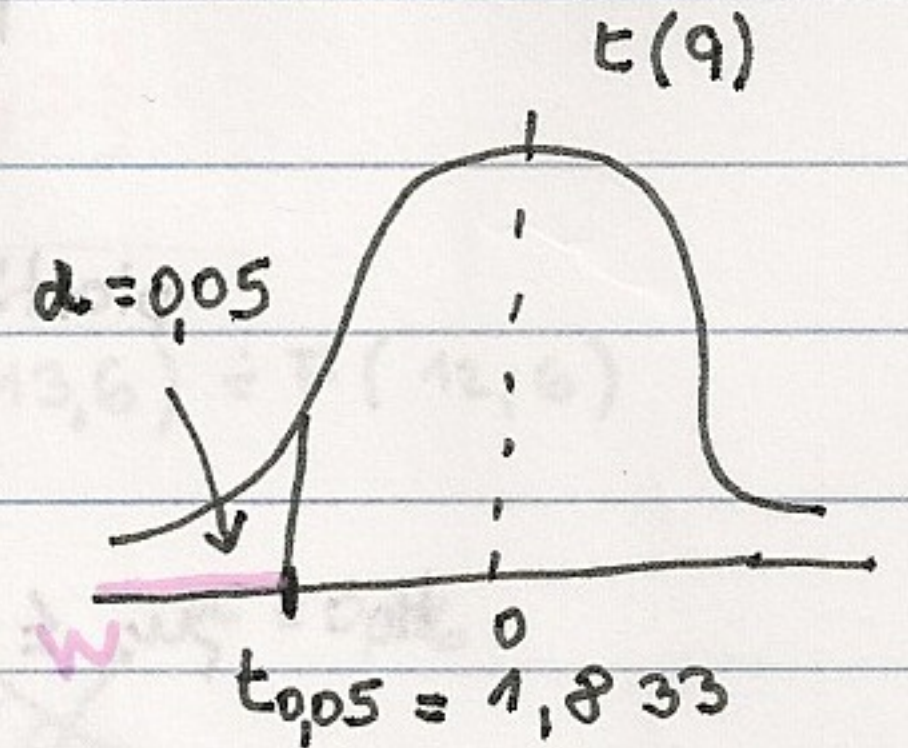 t(9)
α = 0,05
W
0
t0,05 = 1,833